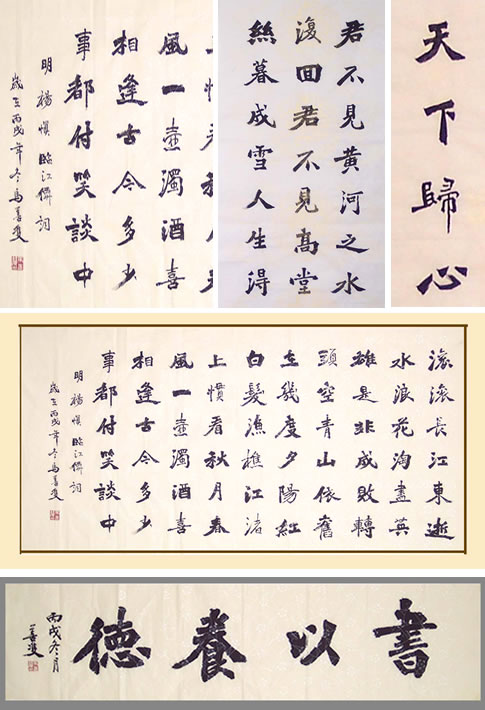 風一壺濁酒喜
相逢古今多少
事都付笑談中
明楊慎臨江僊詞
歲在丙戌年冬馬善雙
君不見黃河之水
復回君不見高堂
絲暮成雪人生得
天下歸心
滾滾長江東逝
水浪花淘盡英
雄是非成敗轉
頭空青山依舊
在幾度夕陽紅
白髮漁樵江渚
上慣看秋月春
風一壺濁酒喜
相逢古今多少
事都付笑談中
明楊慎臨江僊詞
歲在丙戌年冬馬善雙
書以養德
丙戌冬月
善雙